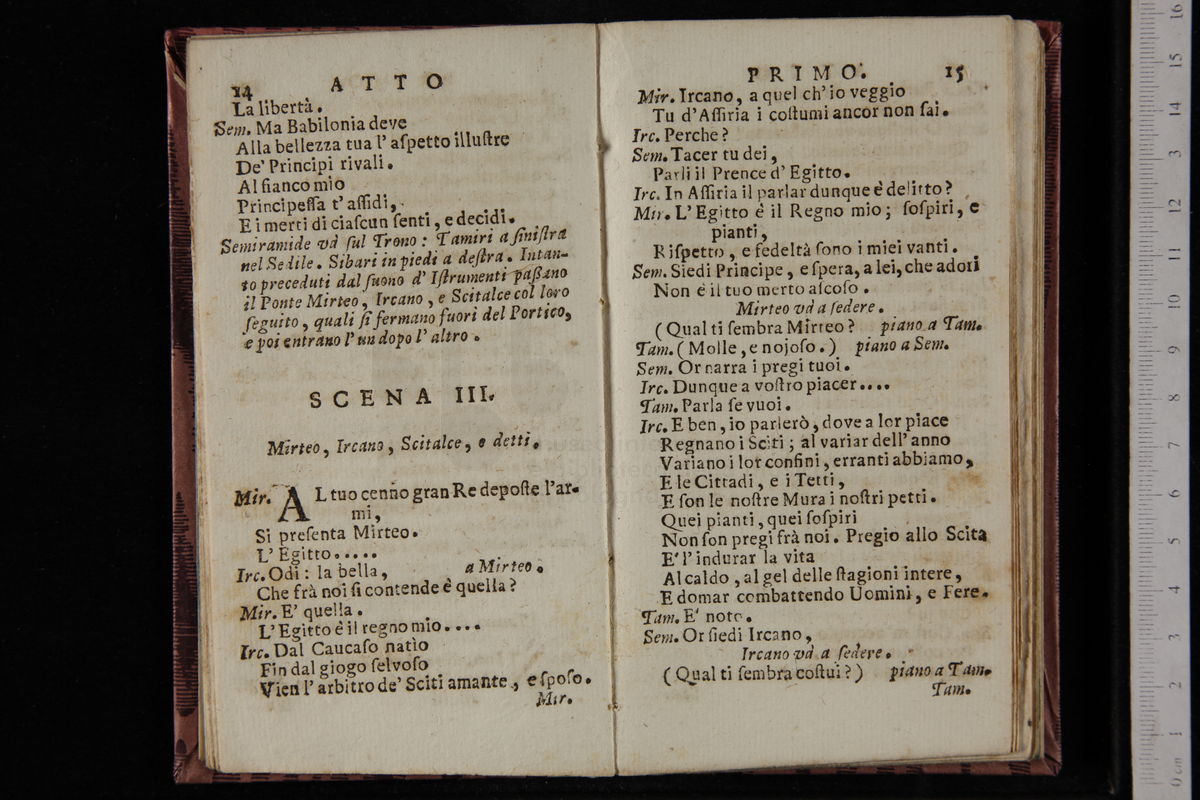 14 ATTO
La libertà.
Sem. Ma Babilonia deve
Alla bellezza tua l' aſpetto illuſtre
De' Principi rivali.
Al fianco mio
Principeſſa t' aſſidi,
E i merti di ciaſcun ſenti, e decidi.
Semiramide và ſul Trono: Tamiri a ſiniſtra
nel Sedile. Sibari in piedi a deſtra. Intan-
to preceduti dal ſuono d' Iſtrumenti paßano
il Ponte Mirteo, Ircano, e Scitalce col loro
ſeguito, quali ſi fermano fuori del Portico,
e poi entrano l' un dopo l' altro.
SCENA III.
Mirteo, Ircano, Scitalce, e detti.
Mir. AL tuo cenno gran Re depoſte l'ar-
mi,
Si preſenta Mirteo.
L' Egitto.....
Irc. Odi: la bella, a Mirteo.
Che frà noi ſi contende è quella?
Mir. E' quella.
L' Egitto è il regno mio....
Irc. Dal Caucaſo natìo
Fin dal giogo ſelvoſo
Vien l' arbitro de' Sciti amante, e ſpoſo.
Mir.
PRIMO. 15
Mir. Ircano, a quel ch' io veggio
Tu d' Aſſiria i coſtumi ancor non ſai.
Irc. Perche?
Sem. Tacer tu dei,
Parli il Prence d' Egitto.
Irc. In Aſſiria il parlar dunque è delitto?
Mir. L' Egitto è il Regno mio; ſoſpiri, e
pianti,
Riſpetto, e fedeltà ſono i miei vanti.
Sem. Siedi Principe, e ſpera, a lei, che adori
Non è il tuo merto aſcoſo.
Mirteo và a ſedere.
(Qual ti ſembra Mirteo? piano a Tam.
Tam. (Molle, e nojoſo.) piano a Sem.
Sem. Or narra i pregi tuoi.
Irc. Dunque a voſtro piacer....
Tam. Parla ſe vuoi.
Irc. E ben, io parlerò, dove a lor piace
Regnano i Sciti; al variar dell' anno
Variano i lor confini, erranti abbiamo,
E le Cittadi, e i Tetti,
E ſon le noſtre Mura i noſtri petti.
Quei pianti, quei ſoſpiri
Non ſon pregi frà noi. Pregio allo Scita
E' l' indurar la vita
Al caldo, al gel delle ſtagioni intere,
E domar combattendo Uomini, e Fere.
Tam. E' noto.
Sem. Or ſiedi Ircano,
Ircano và a ſedere.
(Qual ti ſembra coſtui?) piano a Tam.
Tam.
0 cm 1 2 3 4 5 6 7 8 9 10 11 12 13 14 15 16